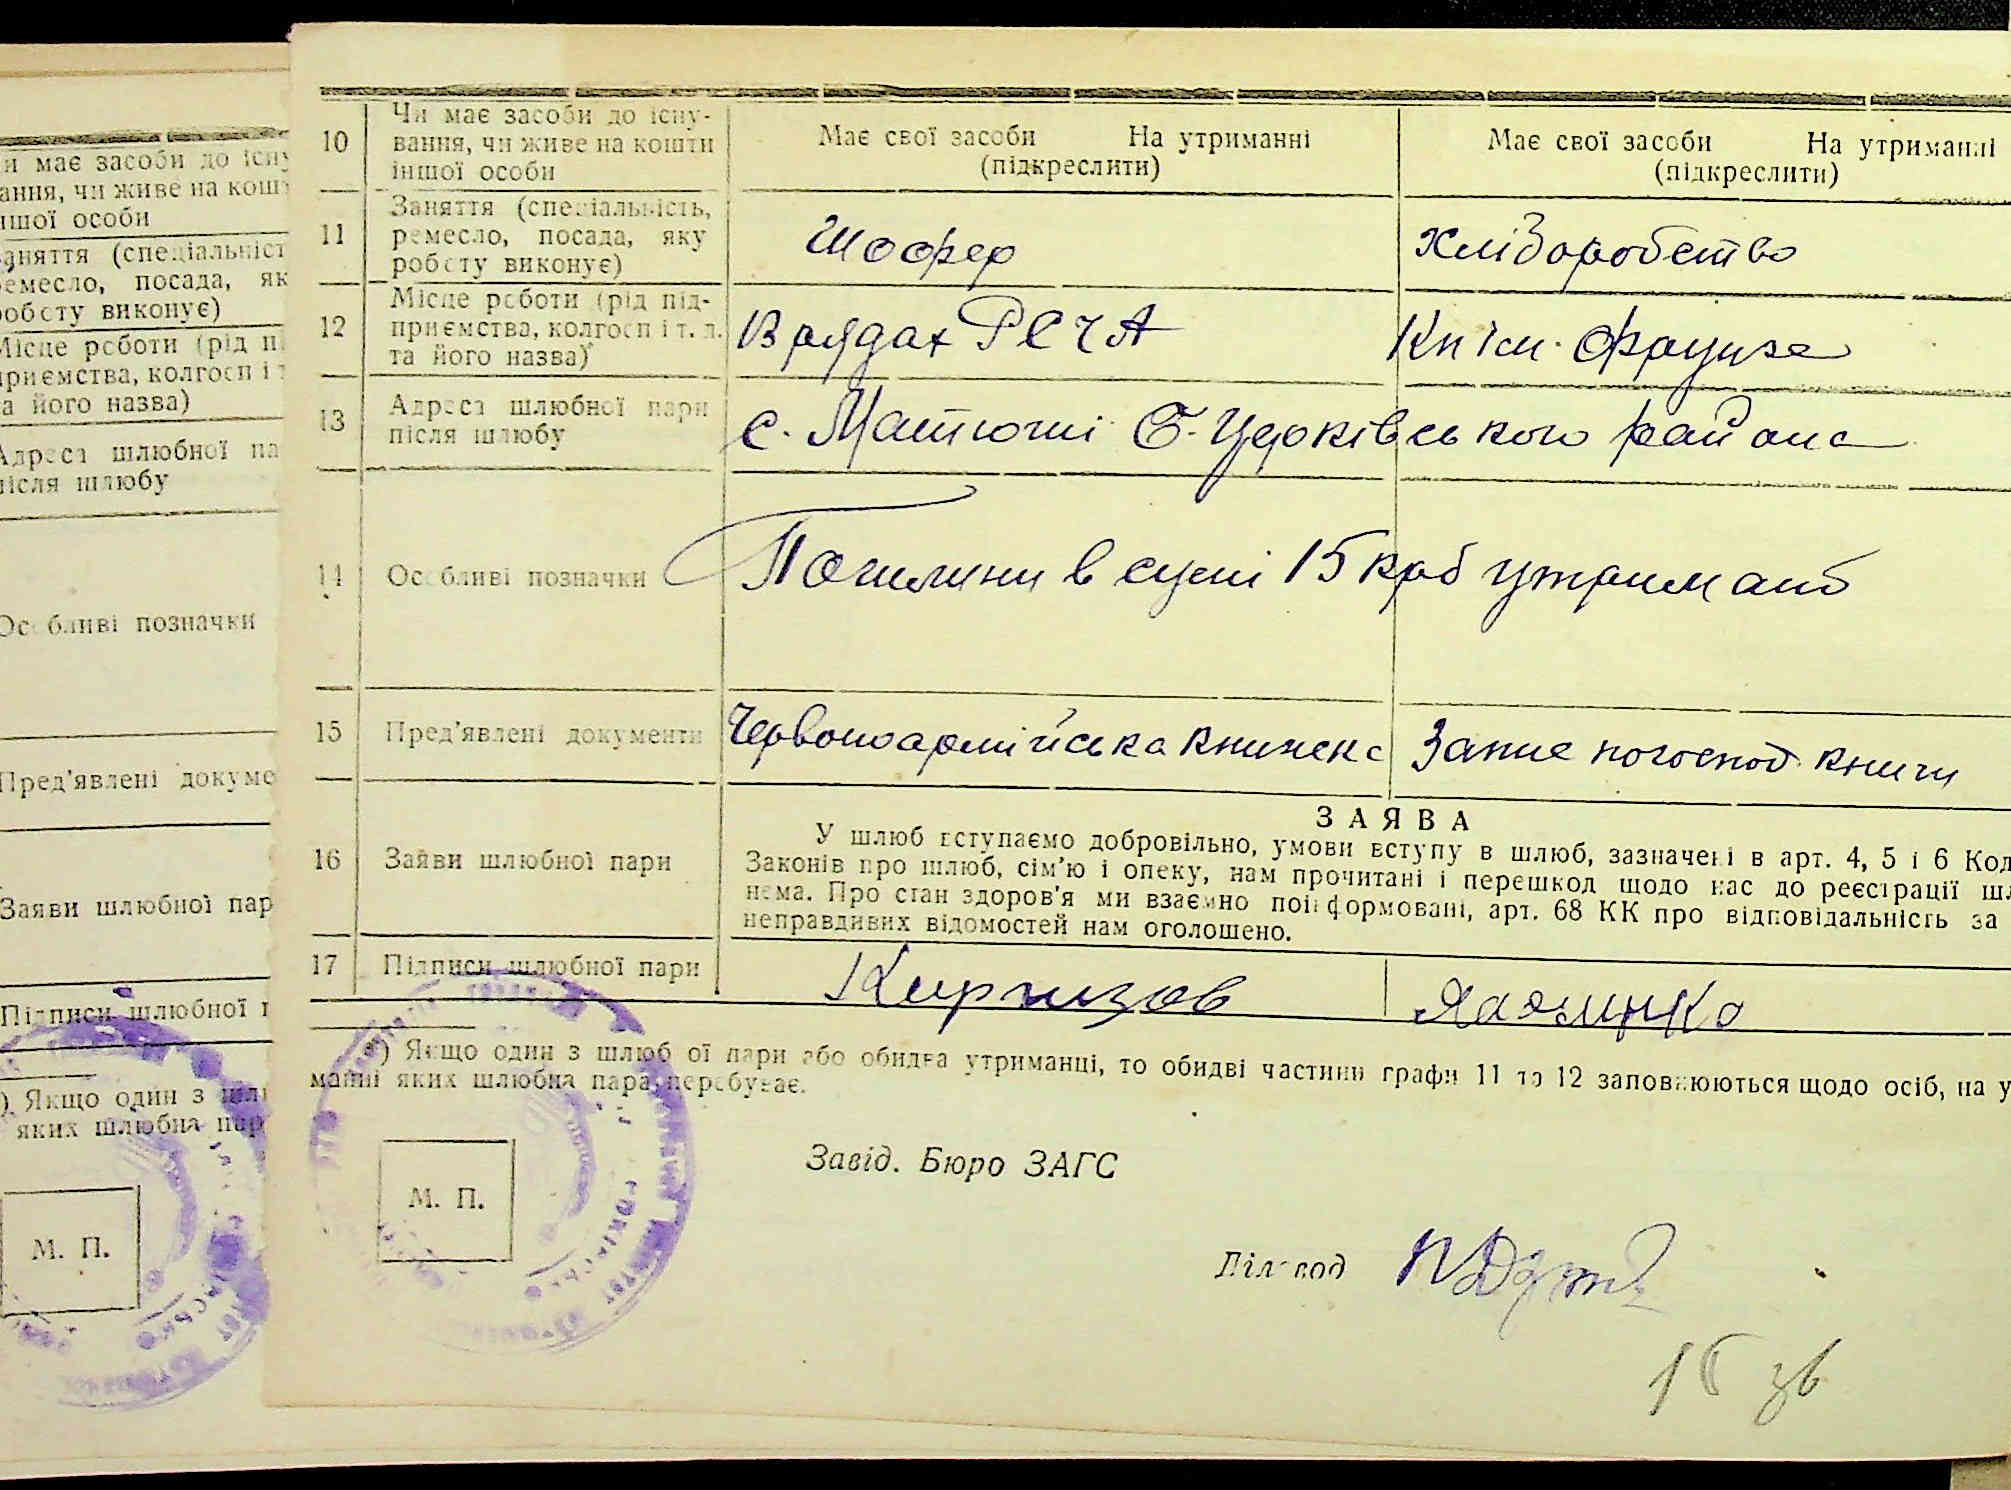 10 Чи має засоби до існу-
вання, чи живе на кошти
іншої особи
Має свої засоби На утриманні
(підкреслити)
Має свої засоби На утриманні
(підкреслити)
11 Заняття (спеціальність,
ремесло, посада, яку
роботу виконує)
Шофер
хліборобство
12 Місце роботи (рід під-
приємства, колгосп і т. д.
та його назва)
В рядах РСЧА
Кп ім. Фрунзе
13 Адреса шлюбної пари
після шлюбу
с. Матюші Б-Церківського району
14 Особливі позначки
в сумі 15 крб
15 Пред'явлені документи
Червоноармійська книжка
Запис погоспод. книги
16 Заяви шлюбної пари
ЗАЯВА
У шлюб вступаємо добровільно, умови вступу в шлюб, зазначені в арт. 4, 5 і 6 Код
Законів про шлюб, сім'ю і опеку, нам прочитані і перешкод щодо нас до реєстрації шл
нема. Про стан здоров'я ми взаємно поінформовані, арт. 68 КК про відповідальність за
неправдивих відомостей нам оголошено.
17 Підписи шлюбної пари
Киргизов
*) Якщо один з шлюбної пари або обидва утриманці, то обидві частини графи 11 та 12 заповнюються щодо осіб, на у
манні яких шлюбна пара перебуває.
М. П.
Завід. Бюро ЗАГС
Діловод
и має засоби до існу
ання, чи живе на кошт
іншої особи
аняття (спеціальніст
емесло, посада, як
роботу виконує)
Місце роботи (рід п
приємства, колгосп і т
а його назва)
Адреса шлюбної па
після шлюбу
Особливі позначки
Пред'явлені докуме
Заяви шлюбної пар
Підписи шлюбної п
) Якщо один з шлю
яких шлюбна пар
М. П.